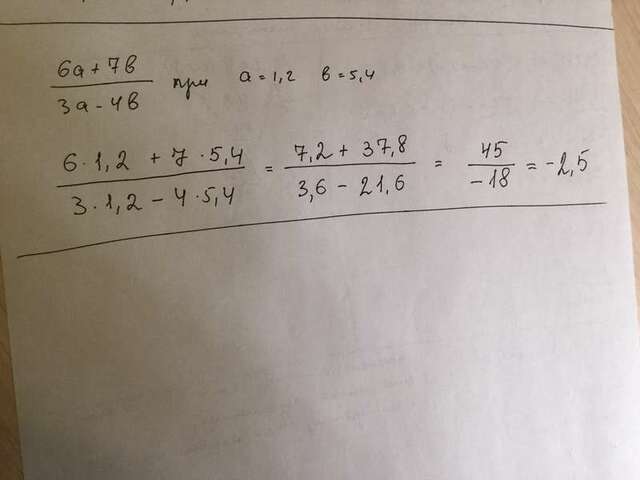 6a + 7b / 3a - 4b при a = 1,2 b = 5,4
6 · 1,2 + 7 · 5,4 / 3 · 1,2 - 4 · 5,4 = 7,2 + 37,8 / 3,6 - 21,6 = 45 / -18 = -2,5